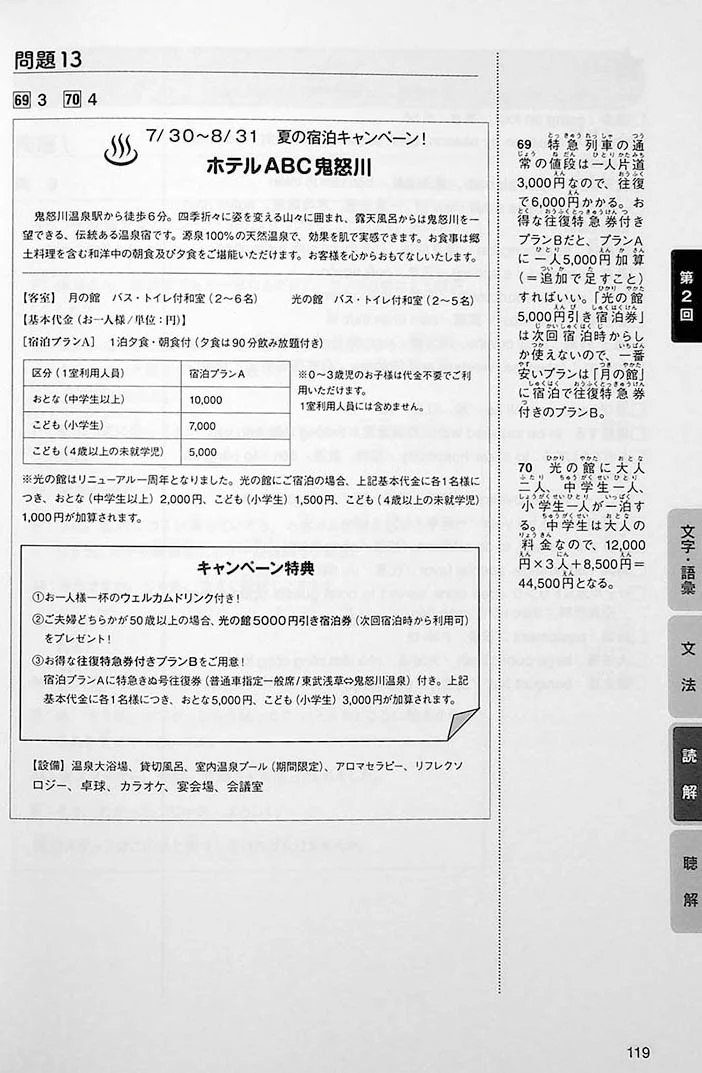 問題13
69 3 70 4
7/30～8/31 夏の宿泊キャンペーン！
ホテルABC鬼怒川
鬼怒川温泉駅から徒歩6分。四季折々に姿を変える山々に囲まれ、露天風呂からは鬼怒川を一
望できる、伝統ある温泉宿です。源泉100％の天然温泉で、効果を肌で実感できます。お食事は郷
土料理を含む和洋中の朝食及び夕食をご堪能いただけます。お客様を心からおもてなしいたします。
【客室】 月の館 バス・トイレ付和室（2～6名） 光の館 バス・トイレ付和室（2～5名）
【基本代金（お一人様/単位：円）】
［宿泊プランA］ 1泊夕食・朝食付（夕食は90分飲み放題付き）
区分（1室利用人員） 宿泊プランA
おとな（中学生以上） 10,000
こども（小学生） 7,000
こども（4歳以上の未就学児） 5,000
※0～3歳児のお子様は代金不要でご利
用いただけます。
1室利用人員には含めません。
※光の館はリニューアル一周年となりました。光の館にご宿泊の場合、上記基本代金に各1名様に
つき、おとな（中学生以上）2,000円、こども（小学生）1,500円、こども（4歳以上の未就学児）
1,000円が加算されます。
キャンペーン特典
①お一人様一杯のウェルカムドリンク付き！
②ご夫婦どちらかが50歳以上の場合、光の館5000円引き宿泊券（次回宿泊時から利用可）
をプレゼント！
③お得な往復特急券付きプランBをご用意！
宿泊プランAに特急きぬ号往復券（普通車指定一般席/東武浅草⇔鬼怒川温泉）付き。上記
基本代金に各1名様につき、おとな5,000円、こども（小学生）3,000円が加算されます。
【設備】温泉大浴場、貸切風呂、室内温泉プール（期間限定）、アロマセラピー、リフレクソ
ロジー、卓球、カラオケ、宴会場、会議室
69 特急列車の通
常の値段は一人片道
3,000円なので、往復
で6,000円かかる。お
得な往復特急券付き
プランBだと、プランA
に一人5,000円加算
（＝追加で足すこと）
すればいい。「光の館
5,000円引き宿泊券」
は次回宿泊時からし
か使えないので、一番
安いプランは「月の館」
に宿泊で往復特急券
付きのプランB。
70 光の館に大人
二人、中学生一人、
小学生一人が一泊す
る。中学生は大人の
料金なので、12,000
円×3人＋8,500円＝
44,500円となる。
第2回
文字・語彙
文法
読解
聴解
119